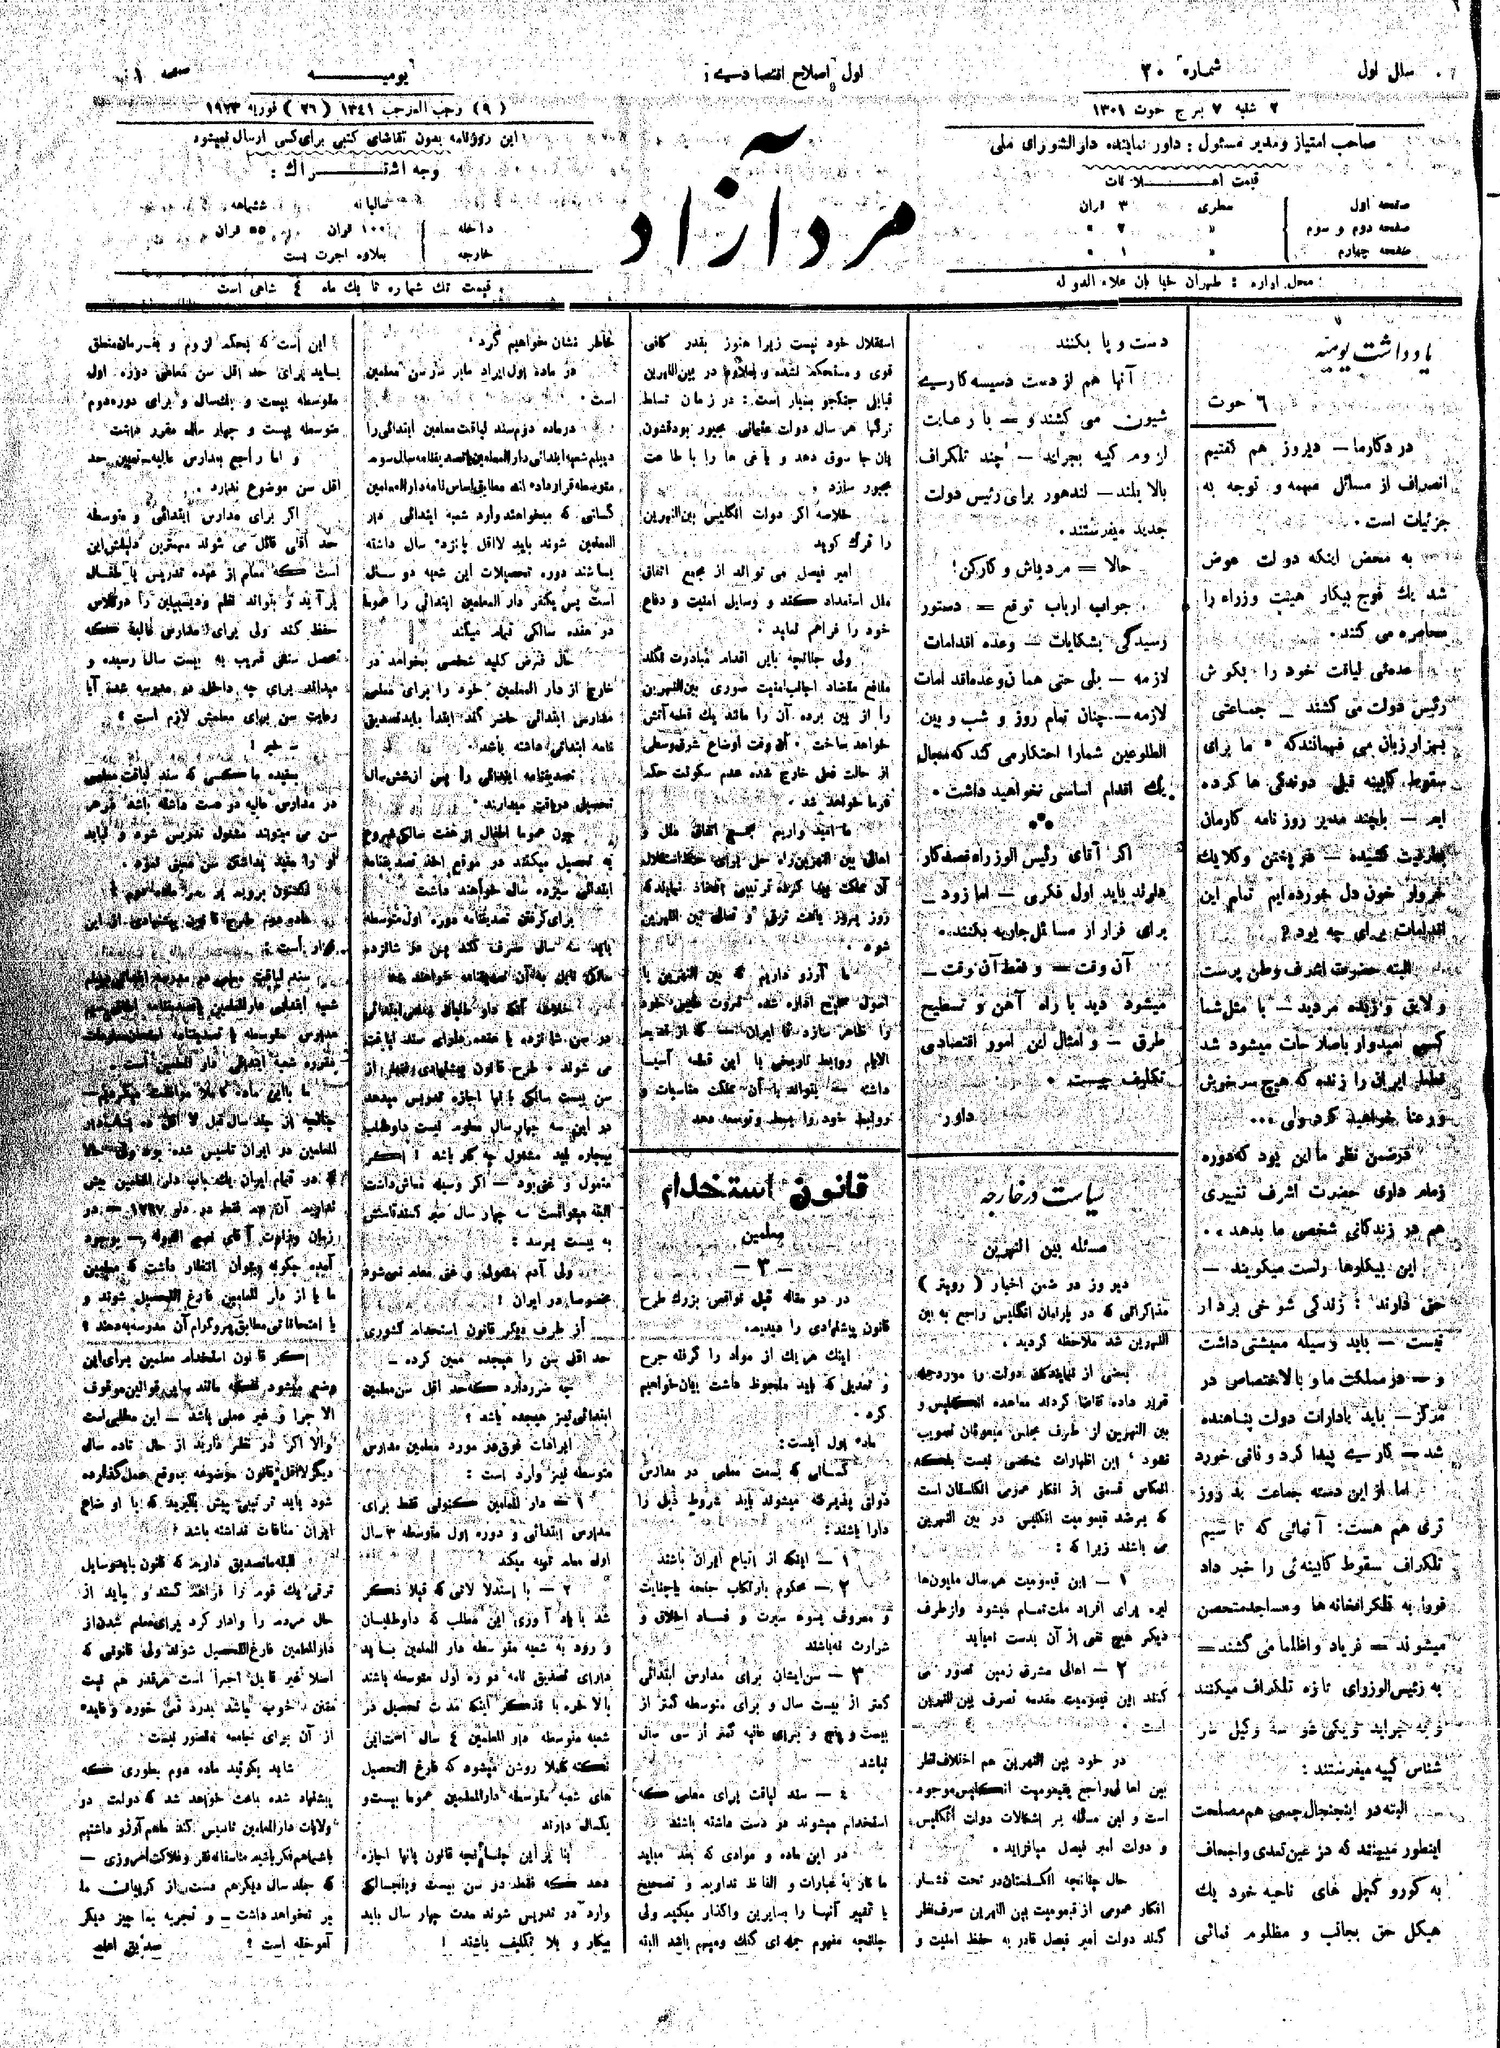 سال اول
شماره ۳۰
اول اصلاح اقتصادی
یومیه
صفحه ۱
۲ شنبه ۷ برج حوت ۱۳۰۱
(۹) رجب المرجب ۱۳۴۱ (۲۶) فوریه ۱۹۲۳
صاحب امتیاز و مدیر مسئول : داور نماینده دارالشورای ملی
قیمت اعلانات
صفحه اول سطری ۳ قران
صفحه دوم و سوم » ۲ »
صفحه چهارم » ۱ »
محل اداره : طهران خیابان علاء الدوله
مرد آزاد
این روزنامه بدون تقاضای کتبی برای کسی ارسال نمیشود
وجه اشتراک :
سالیانه ششماهه
داخله ۱۰۰ قران ۵۵ قران
خارجه بعلاوه اجرت پست
قیمت تک شماره تا یک ماه ٤ شاهی است
یادداشت یومیه
۶ حوت
درد کارما — دیروز هم گفتیم
انصراف از مسائل مهمه و توجه به
جزئیات است .
به محض اینکه دولت عوض
شد یک فوج بیکار هیئت وزراء را
محاصره می کنند .
عده‌ئی لیاقت خود را بگوش
رئیس دولت می کشند — جماعتی
بهزار زبان می فهمانند که « ما برای
سقوط کابینه قبلی دوندگی ها کرده
ایم — با چند مدیر روزنامه کارمان
خروار خون دل خورده ایم تمام این
اقدامات برای چه بود ؟
البته حضرت اشرف وطن پرست
و لایق و زنده مردید — با مثل شما
کسی امیدوار باصلاحات میشود شد
ورعنا خواهید کرد ولی ...
غرضمن نظر ما این بود که دوره
زمام داری حضرت اشرف تغییری
هم در زندگانی شخصی ما بدهد » .
این بیکارها راست میگویند —
حق دارند : زندگی شوخی بردار
نیست — باید وسیله معیشتی داشت
و — در مملکت ما و بالاختصاص در
مرکز — باید بادارات دولت پناهنده
شد — کاری پیدا کرد و نانی خورد
اما از این دسته جماعت بد روز
تری هم هست : آنهائی که تا سیم
تلگراف سقوط کابینه ئی را خبر داد
فورا به تلگرافخانه ها و مساجد متحصن
میشوند — فریاد و اظلما می کشند =
به رئیس الوزرای تازه تلگراف میکنند
و به جراید نزدیکی دو سه وکیل سر
شناس کپیه میفرستند :
البته در اینجنجال جمعی هم مصلحت
اینطور میبینند که در عین تعدی و اجحاف
به کور و کچل های ناحیه خود یک
هیکل حق بجانب و مظلوم نمائی
دست و پا بکنند
آنها هم از دست دسیسه کاری
شیون می کشند و — با رعایت
لزوم کپیه بجراید — چند تلگراف
بالا بلند — لندهور برای رئیس دولت
جدید میفرستند .
حالا = مرد باش و کار کن !
جواب ارباب توقع = دستور
رسیدگی بشکایات — وعده اقدامات
لازمه — بلی حتی همان وعده اقدامات
لازمه — چنان تمام روز و شب و بین
الطلوعین شما را احتکار می کند که مجال
یک اقدام اساسی نخواهید داشت .
اگر آقای رئیس الوزراء قصد کار
دارند باید اول فکری — اما زود —
برای فرار از مسائل جاریه بکنند .
آن وقت — و فقط آن وقت —
میشود دید با راه آهن و تسطیح
طرق — و امثال این امور اقتصادی
تکلیف چیست .
داور
سیاست در خارجه
مسئله بین النهرین
دیروز در ضمن اخبار ( رویتر )
مذاکراتی که در پارلمان انگلیس راجع به بین
النهرین شد ملاحظه کردید .
بعضی از نمایندگان دولت را مورد حمله
قرار داده تقاضا کردند معاهده انگلیس و
بین النهرین از طرف مجلس مبعوثان تصویب
نشود ، این اظهارات شخصی نیست بلکه
انعکاس قسمتی از افکار عمومی انگلستان است
که بر ضد قیمومیت انگلیس در بین النهرین
می باشند زیرا که :
۱ — این قیمومیت هر سال ملیونها
لیره برای افراد ملت تمام میشود و از طرف
دیگر هیچ نفعی از آن بدست نمیاید
۲ — اهالی مشرق زمین تصور می
کنند این قیمومیت مقدمه تصرف بین النهرین
است .
در خود بین النهرین هم اختلاف نظر
بین اهالی راجع بقیمومیت انگلیس موجود
است و این مسئله بر اشکالات دولت انگلیس
و دولت امیر فیصل میافزاید .
حال چنانچه انگلستان در تحت فشار
افکار عمومی از قیمومیت بین النهرین صرف نظر
کند دولت امیر فیصل قادر به حفظ امنیت و
استقلال خود نیست زیرا هنوز بقدر کافی
قوی و مستحکم نشده و بعلاوه در بین النهرین
قبایل جنگجو بسیار است : در زمان تسلط
ترکها هر سال دولت عثمانی مجبور بود قشون
بان جا سوق دهد و یاغی ها را با طاعت
مجبور سازد .
خلاصه اگر دولت انگلیس بین النهرین
را ترک گوید
امیر فیصل می تواند از مجمع اتفاق
ملل استمداد کند و وسایل امنیت و دفاع
خود را فراهم نماید .
ولی چنانچه باین اقدام مبادرت نکند
منافع متضاد اجانب امنیت صوری بین النهرین
را از بین برده آن را مانند یک قطعه آتش
خواهد ساخت . آن وقت اوضاع شرق وسطی
از حالت فعلی خارج شده عدم سکونت حکم
فرما خواهد شد .
ما امیدواریم مجمع اتفاق ملل و
اهالی بین النهرین راه حلی برای حفظ استقلال
آن مملکت پیدا کرده ترتیبی اتخاذ نمایند که
روز بروز باعث ترقی و تعالی بین النهرین
شود .
ما آرزو داریم که بین النهرین با
اصول صحیح اداره شده ثروت طبیعی خود
را ظاهر سازد تا ایران — که از قدیم
الایام روابط تاریخی با این قطعه آسیا
داشته — بتواند با آن مملکت مناسبات و
روابط خود را بسط و توسعه دهد
قانون استخدام
معلمین
— ۳ —
در دو مقاله قبل نواقص بزرک طرح
قانون پیشنهادی را دیدیم .
اینک هر یک از مواد را گرفته جرح
و تعدیلی که باید ملحوظ داشت بیان خواهیم
کرد .
ماده اول اینست :
کسانی که بسمت معلمی در مدارس
دولتی پذیرفته میشوند باید شروط ذیل را
دارا باشند :
۱ — اینکه از اتباع ایران باشند
۲ — محکوم بارتکاب جنحه یا جنایت
و معروف بسوء سیرت و فساد اخلاق و
شرارت نباشند
۳ — سن ایشان برای مدارس ابتدائی
کمتر از بیست سال و برای متوسطه کمتر از
بیست و پنج و برای عالیه کمتر از سی سال
نباشد
٤ — سند لیاقت برای معلمی که
استخدام میشوند در دست داشته باشند
در این ماده و موادی که بعد میاید
ما کار به عبارات و الفاظ نداریم و تصحیح
یا تغییر آنها را بسایرین واگذار میکنیم ولی
چنانچه مفهوم جمله ای گنگ و مبهم باشد البته
خاطر نشان خواهیم کرد .
در ماده اول ایراد ما بر سر سن معلمین
است .
در ماده دوم سند لیاقت معلمین ابتدائی را
دیپلم شعبه ابتدائی دار المعلمین یا تصدیقنامه سال سوم
متوسطه قرار داده اند مطابق اساس نامه دار المعلمین
کسانی که میخواهند وارد شعبه ابتدائی دار
المعلمین شوند باید لااقل پانزده سال داشته
باشند دوره تحصیلات این شعبه دو سال
است پس یکنفر دار المعلمین ابتدائی را عموما
در هفده سالگی تمام میکند
حال فرض کنید شخصی بخواهد در
خارج از دار المعلمین خود را برای معلمی
مدارس ابتدائی حاضر کند ابتدا باید تصدیق
نامه ابتدائی داشته باشد .
تصدیقنامه ابتدائی را پس از شش سال
تحصیل دریافت میدارند .
چون عموما اطفال از هفت سالگی شروع
به تحصیل میکنند در موقع اخذ تصدیقنامه
ابتدائی سیزده سال خواهند داشت
برای گرفتن تصدیقنامه دوره اول متوسطه
باید سه سال صرف کنند پس در شانزده
سالگی نایل به آن تصدیقنامه خواهند شد
خلاصه آنکه داوطلبان معلمی ابتدائی
در سن شانزده یا هفده دارای سند لیاقت
می شوند . طرح قانون پیشنهادی فقط از
سن بیست سالگی بانها اجازه تدریس میدهد
در این سه چهار سال معلوم نیست داوطلب
بیچاره باید مشغول چه کار باشد ! اگر
متمول و غنی بود — اگر وسیله معاش داشت
البته میتوانست سه چهار سال صبر کند تا سنش
به بیست برسد :
ولی آدم متمول و غنی معلم نمی شود
مخصوصا در ایران !
از طرف دیگر قانون استخدام کشوری
حد اقل سن را هیجده معین کرده —
چه ضرر دارد که حد اقل سن معلمین
ابتدائی نیز هیجده باشد ؟
ایرادات فوق در مورد معلمین مدارس
متوسطه نیز وارد است :
۱ — دار المعلمین کنونی فقط برای
مدارس ابتدائی و دوره اول متوسطه ۳ سال
اول معلم تهیه میکند
۲ — با استدلالاتی که قبلا ذکر
شد با یاد آوری این مطلب که داوطلبان
ورود به شعبه متوسطه دار المعلمین باید
دارای تصدیق نامه دوره اول متوسطه باشند
بالاخره با تذکر اینکه مدت تحصیل در
شعبه متوسطه دار المعلمین ٤ سال است این
نکته کاملا روشن میشود که فارغ التحصیل
های شعبه متوسطه دارالمعلمین عموما بیست و
یکسال دارند
بنا بر این چنانچه قانون بانها اجازه
دهد که فقط در سن بیست و پنجسالگی
وارد در تدریس شوند مدت چهار سال باید
بیکار و بلا تکلیف باشند !
این است که بحکم لزوم و بفرمان منطق
باید برای حد اقل سن معلمی دوره اول
متوسطه بیست و یک سال و برای دوره دوم
متوسطه بیست و چهار سال مقرر داشت
و اما راجع بمدارس عالیه — تعیین حد
اقل سن موضوع ندارد .
اگر برای مدارس ابتدائی و متوسطه
حد اقلی قائل می شوند مهمترین دلیلش این
است که معلم از عهده تدریس با اطفال
برآید و بتواند نظم و دیسیپلین را در کلاس
حفظ کند ولی برای مدارس عالیه که
محصل سنش قریب به بیست سال رسیده و
میداند برای چه داخل در مدرسه شده آیا
رعایت سن برای معلمش لازم است ؟
— خیر !
بعقیده ما کسی که سند لیاقت معلمی
در مدارس عالیه در دست داشته باشد در هر
سن می تواند مشغول تدریس شود و نباید
او را مقید بداشتن سن معین نمود .
اکنون برویم بر سر ماده دوم !
ماده دوم طرح قانون پیشنهادی از این
قرار است :
سند لیاقت معلمی در مدرسه ابتدائی دیپلم
شعبه ابتدائی دارالمعلمین یا تصدیقنامه
مقرره شعبه ابتدائی دار المعلمین است .
ما با این ماده کاملا موافقت میکردیم —
چنانچه از چند سال قبل لا اقل ده
المعلمین در ایران تاسیس شده بود ولی حالا
در تمام ایران یک باب دار المعلمین بیش
زمان وزارت آقای نصیر الدوله — بوجود
آمده چگونه میتوان انتظار داشت که معلمین
ما یا از دار المعلمین فارغ التحصیل شوند و
یا امتحاناتی مطابق پروگرام آن مدرسه بدهند ؟
اگر قانون استخدام معلمین برای این
وضع میشود که مانند سایر قوانین موقوف
الاجرا و غیر عملی باشد — این مطلبی است
والا اگر در نظر دارید از حال تا ده سال
دیگر لااقل قانون موضوعه بموقع عمل گذارده
شود باید ترتیبی پیش بگیرید که با اوضاع
ایران منافات نداشته باشد !
البته ما تصدیق داریم که قانون باید وسایل
ترقی یک قوم را فراهم کند و باید از
حال مردم را وادار کرد برای معلم شدن از
دارالمعلمین فارغ التحصیل شوند ولی قانونی که
اصلا غیر قابل اجرا است هر قدر هم نیت
مقنن ، خوب باشد بدرد نمی خورد و فایده
از آن برای جامعه متصور نیست :
شاید بگوئید ماده دوم بطوری که
پیشنهاد شده باعث خواهد شد که دولت در
ولایات دار المعلمین تاسیس کند ما هم آرزو داشتیم
با شما هم فکر باشیم متاسفانه فقر و فلاکت امروزی —
که چند سال دیگر هم دست از گریبان ما
بر نخواهد داشت — و تجربه بما چیز دیگر
آموخته است ؟
صدیق اعلم